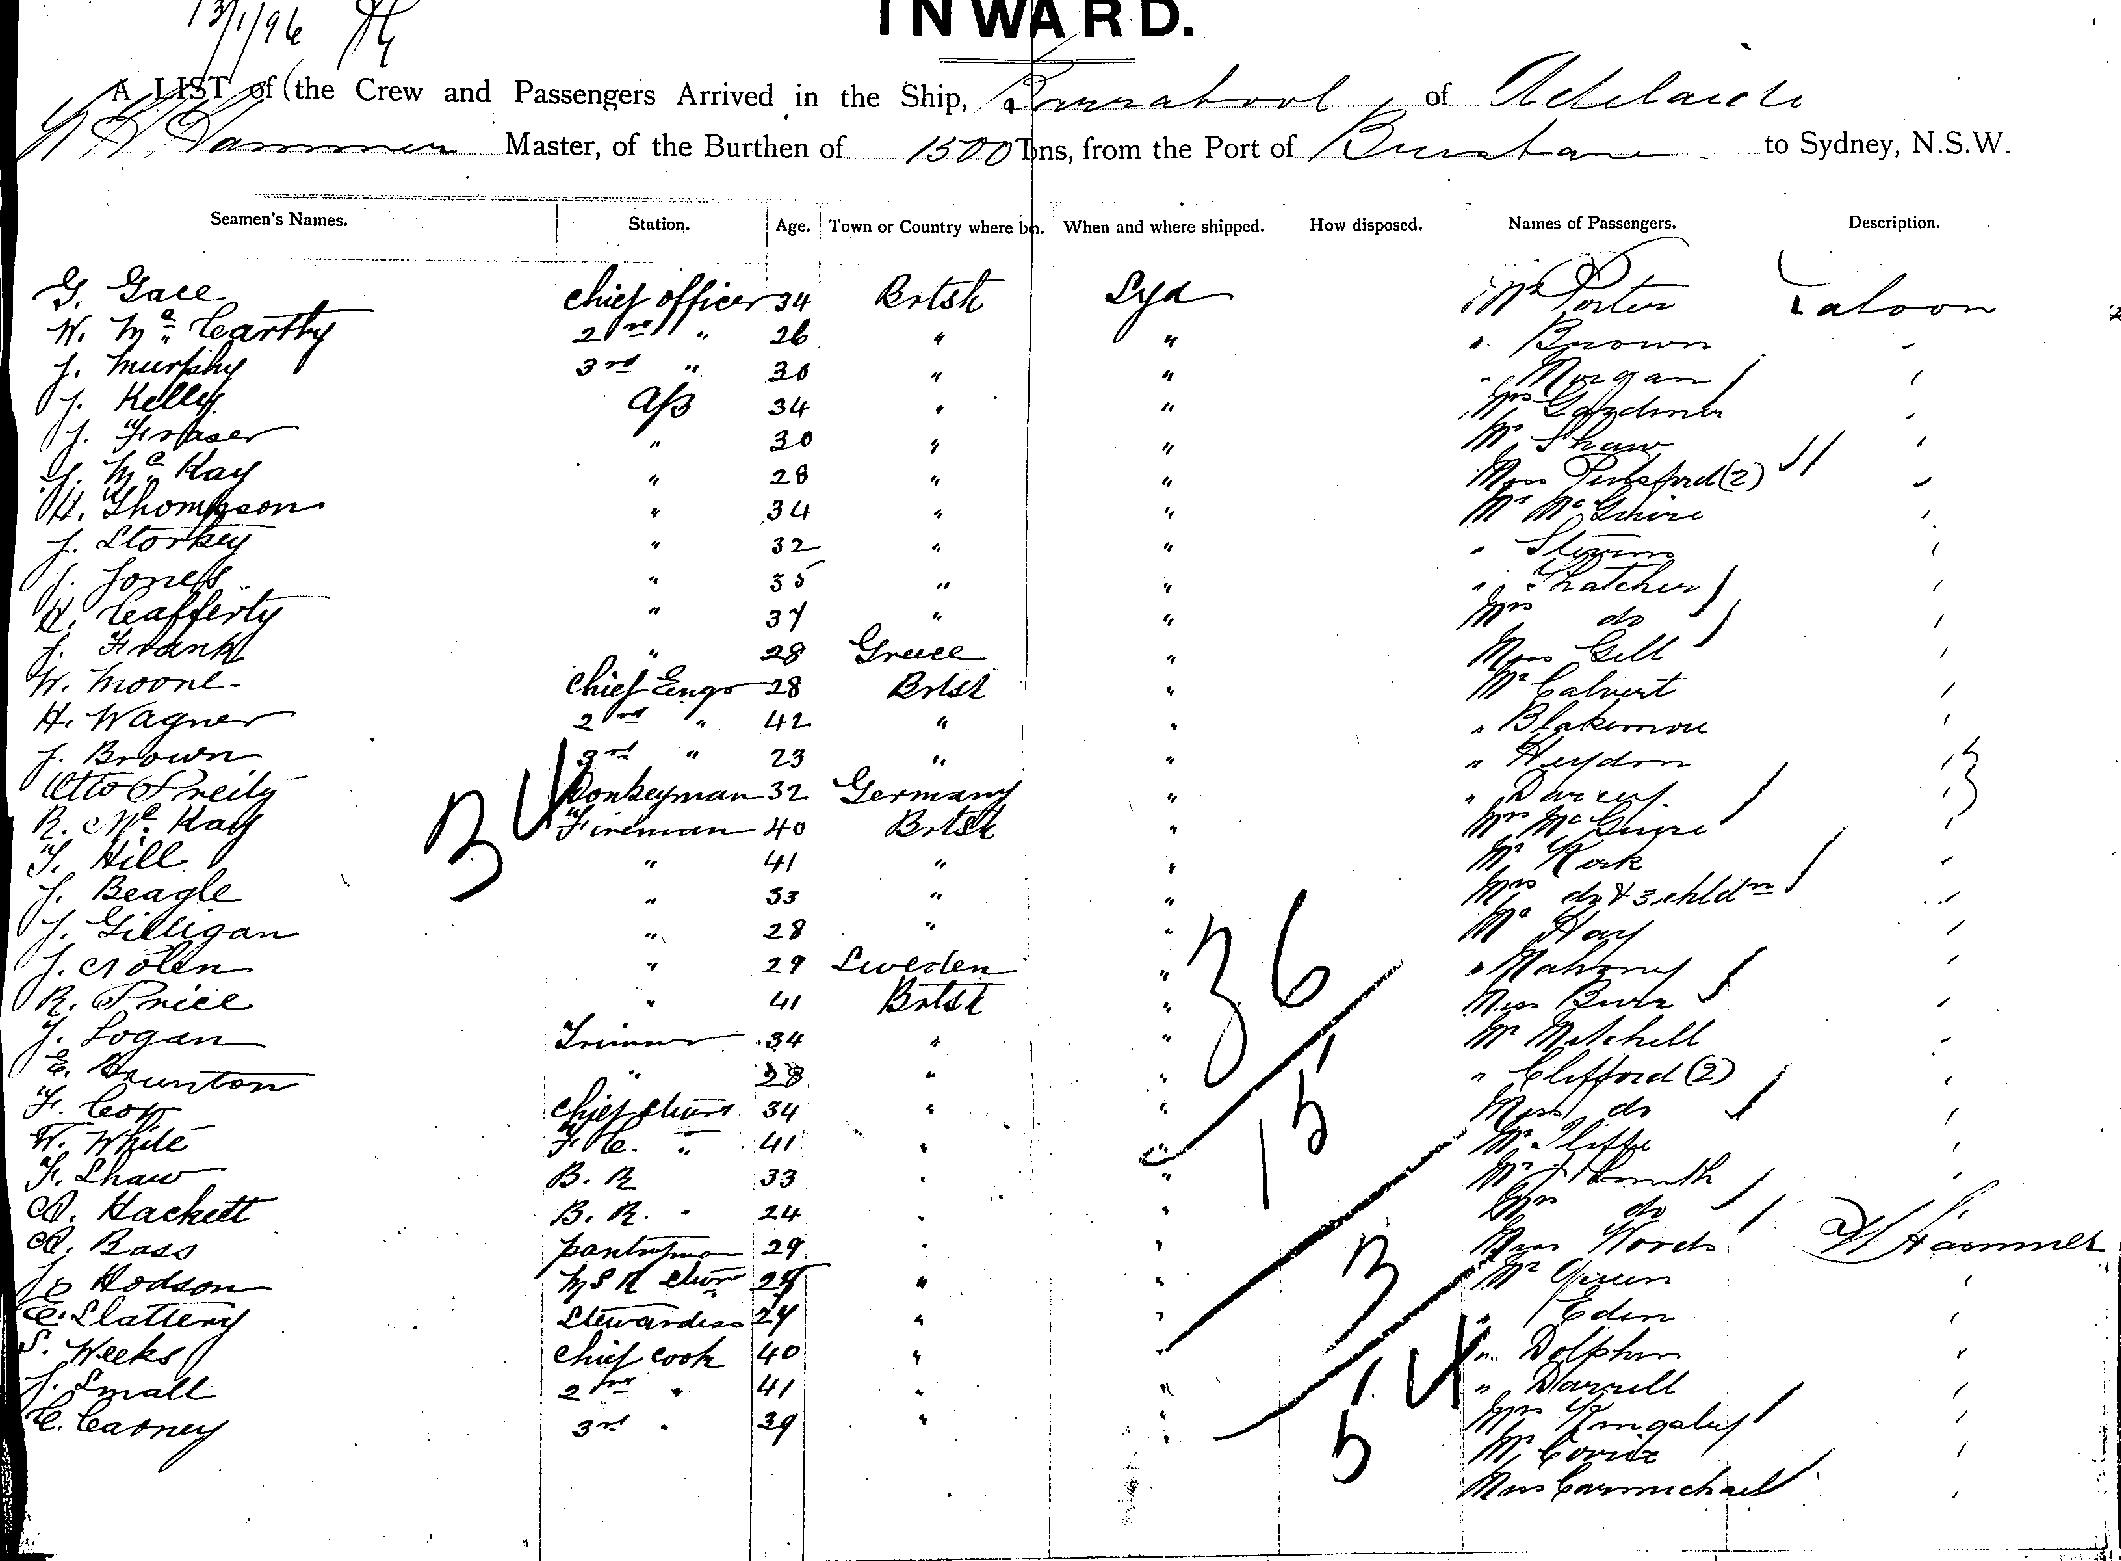 13/1/96
INWARD.
A LIST of the Crew and Passengers Arrived in the Ship, Burrabool of Adelaide
Master, of the Burthen of 1500 Tons, from the Port of Brisbane to Sydney, N.S.W.
Seamen's Names. Station. Age. Town or Country where bn. When and where shipped. How disposed. Names of Passengers. Description.
G. Gace chief officer 34 Brtsh Syd Mr Porter Saloon
W. Mc Carthy 2nd " 26 " " " Brown
J. Murphy 3rd " 30 " " " Morgan
J. Kelly A/B 34 " " Mrs Gardiner
J. Fraser " 30 " " Mr Shaw
J. Mc Kay " 28 " " Miss Pulsford (2)
H. Thompson " 34 " " Mr McGuire
J. Storkey " 32 " "
J. Jones " 35 " " " Thatcher
Cafferty " 37 " " Mrs do
J. Frank " 28 Greece " Miss Gell
W. Moore chief Engr 28 Brtsh " Mr Calvert
H. Wagner 2nd " 42 " " " Blakemore
J. Brown 3rd " 23 " " " Heydon
Otto Donkeyman 32 Germany " " Darcey
R. Mc Kay Fireman 40 Brtsh " Mrs McGuire
T. Hill " 41 " " Mr Kork
J. Beagle " 33 " " Mrs do & 3 chldrn
J. Gilligan " 28 " " Mr Hay
J. Nolen " 29 Sweden " " Mahony
R. Price " 41 Brtsh " Miss Burr
J. Logan Trimmer 34 " " Mr Mitchell
E. Brunton " 28 " " " Clifford (2)
F. Cox chief stwrd 34 " " Miss do
W. White F. C. " 41 " " Mr Iliffe
F. Shaw B. R 33 " " Mr J Smith
A. Hackett B. R. " 24 " " Mrs do
A. Bass pantryman 29 " " Miss
Hodson M S R stwr " " Mr Green
E. Slattery Stewardess 24 " " " Eden
S. Weeks chief cook 40 " " " Dolphin
J. Small 2nd " 41 " " " Darrell
C. Carney 3rd " 39 " " Mrs Kingsley
Mr
Miss Carmichael
34
36
15
3
54
W Hammer